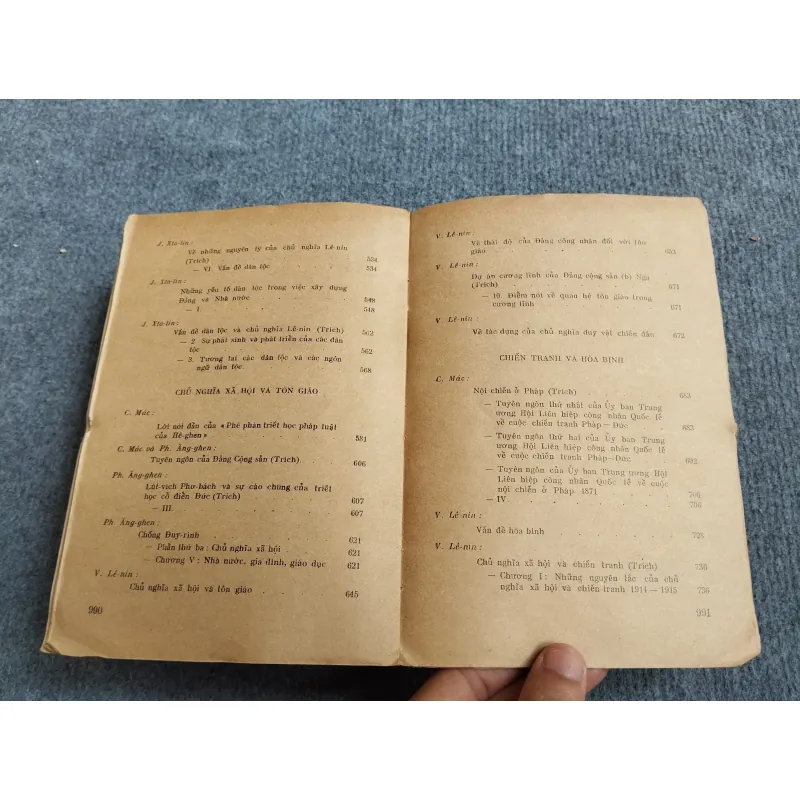 J. Xta-lin :
Về những nguyên lý của chủ nghĩa Lê-nin
(Trích) 534
— VI. Vấn đề dân tộc 534
J. Xta-lin :
Những yếu tố dân tộc trong việc xây dựng
Đảng và Nhà nước 548
— I. 548
J. Xta-lin :
Vấn đề dân tộc và chủ nghĩa Lê-nin (Trích) 562
— 2. Sự phát sinh và phát triển của các dân
tộc 562
— 3. Tương lai các dân tộc và các ngôn
ngữ dân tộc 568
CHỦ NGHĨA XÃ HỘI VÀ TÔN GIÁO
C. Mác :
Lời nói đầu của «Phê phán triết học pháp luật
của Hê-ghen» 581
C. Mác và Ph. Ăng-ghen :
Tuyên ngôn của Đảng Cộng sản (Trích) 606
Ph. Ăng-ghen :
Lút-vích Phơ-bách và sự cáo chung của triết
học cổ điển Đức (Trích) 607
— III. 607
Ph. Ăng-ghen :
Chống Đuy-rinh 621
— Phần thứ ba : Chủ nghĩa xã hội 621
— Chương V : Nhà nước, gia đình, giáo dục 621
V. Lê-nin :
Chủ nghĩa xã hội và tôn giáo 645
990
V. Lê-nin :
Về thái độ của Đảng công nhân đối với tôn
giáo 653
V. Lê-nin :
Dự án cương lĩnh của Đảng cộng sản (b) Nga
(Trích) 671
— 10. Điểm nói về quan hệ tôn giáo trong
cương lĩnh 671
V. Lê-nin :
Về tác dụng của chủ nghĩa duy vật chiến đấu 672
CHIẾN TRANH VÀ HÒA BÌNH
C. Mác :
Nội chiến ở Pháp (Trích) 683
— Tuyên ngôn thứ nhất của Ủy ban Trung
ương Hội Liên hiệp công nhân Quốc tế
về cuộc chiến tranh Pháp — Đức 683
— Tuyên ngôn thứ hai của Ủy ban Trung
ương Hội Liên hiệp công nhân Quốc tế
về cuộc chiến tranh Pháp—Đức 692
— Tuyên ngôn của Ủy ban Trung ương Hội
Liên hiệp công nhân Quốc tế về cuộc
nội chiến ở Pháp 1871 706
— IV 706
V. Lê-nin :
Vấn đề hòa bình 728
V. Lê-nin :
Chủ nghĩa xã hội và chiến tranh (Trích) 736
— Chương I : Những nguyên tắc của chủ
nghĩa xã hội và chiến tranh 1914 — 1915 736
991